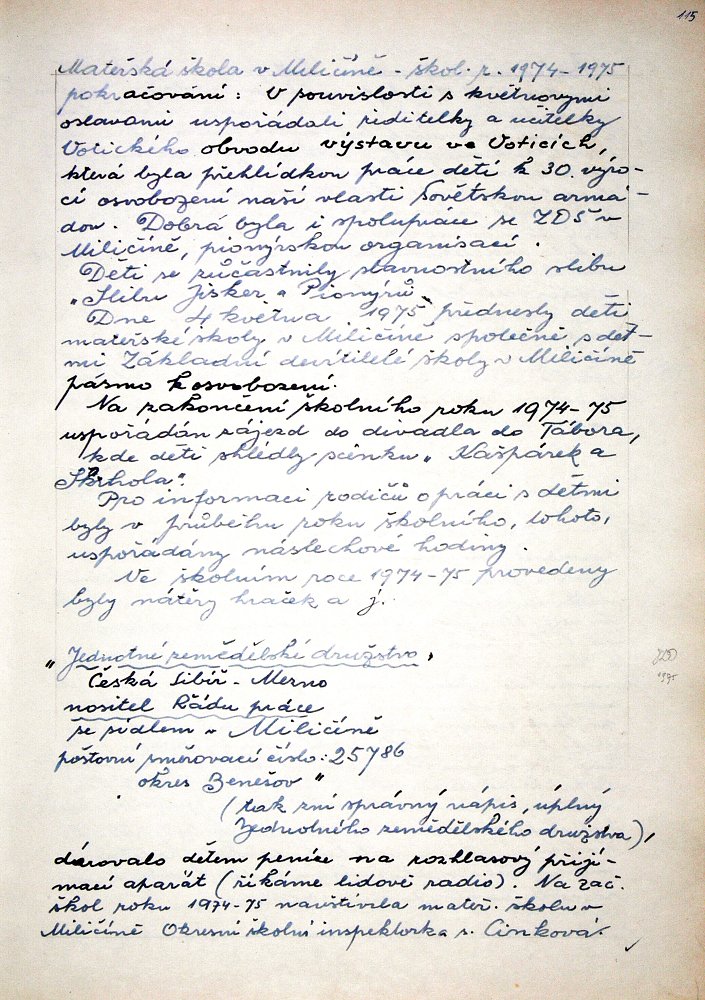 115
Mateřská škola v Miličíně - škol. r. 1974-1975
pokračování: V souvislosti s květnovými
oslavami uspořádali ředitelky a učitelky
Votického obvodu výstavu ve Voticích,
která byla přehlídkou práce dětí k 30. výro-
čí osvobození naší vlasti Sovětskou armá-
dou. Dobrá byla i spolupráce se ZDŠ v
Miličíně, pionýrskou organisací.
Děti se zúčastnily slavnostního slibu
"Slibu Jisker a Pionýrů".
Dne 4 května 1975 přednesly děti
mateřské školy v Miličíně společně s dět-
mi Základní devítileté školy v Miličíně
pásmo k osvobození.
Na zakončení školního roku 1974-75
uspořádán zájezd do divadla do Tábora,
kde děti shlédly scénku "Kašpárek a
Škrhola".
Pro informaci rodičů o práci s dětmi
byly v průběhu roku školního, tohoto,
uspořádány náslechové hodiny.
Ve školním roce 1974-75 provedeny
byly nátěry hraček a j.
"Jednotné zemědělské družstvo,
Česká Sibiř - Mezno
nositel Řádu práce
se sídlem v Miličíně
poštovní směrovací číslo: 25786
okres Benešov"
(tak zní správný nápis, úplný
Jednotného zemědělského družstva),
JZD
1975
darovalo dětem peníze na rozhlasový přijí-
mací aparát (říkáme lidově radio). Na zač.
škol roku 1974-75 navštívila mateř. školu v
Miličíně Okresní školní inspektorka s. Cinková.